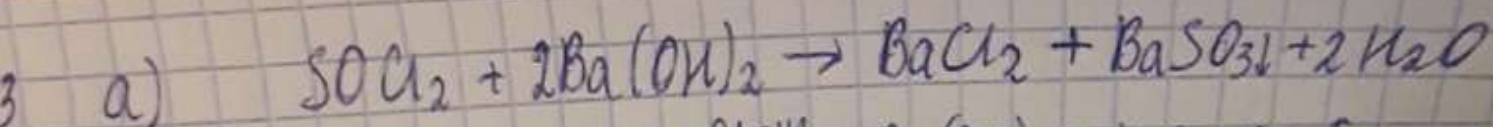 3 a) SOCl₂ + 2Ba(OH)₂ → BaCl₂ + BaSO₃↓ + 2H₂O